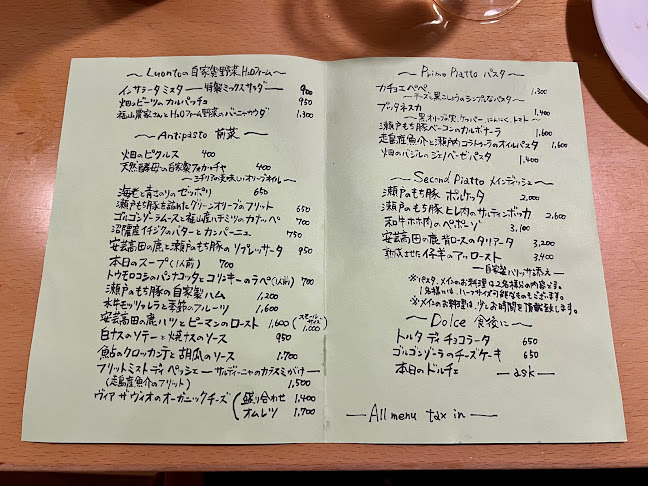 〜 Luontoの自家製野菜 H2Oファーム〜
インサラータ ミスタ ― 特製ミックスサラダ ― 900
畑のビーツの カルパッチョ 950
福山農家さんと H2Oファーム野菜のバーニャカウダ 1.300
〜 Antipasto 前菜 〜
畑のピクルス 400
天然酵母の自家製フォカッチャ 400
― シチリアの美味しいオリーブオイル ―
海老と青さのりのゼッポリ 650
瀬戸もち豚を詰めたグリーンオリーブのフリット 650
ゴルゴンゾーラムースと福山産ハチミツのカナッペ 700
沼隈産イチジクのバターとカンパーニュ 750
安芸高田の鹿と瀬戸のもち豚のリエレッサータ 950
本日のスープ(1人前) 700
トウモロコシのパンナコッタとコリンキーのラペ(1人前) 700
瀬戸のもち豚の自家製ハム 1,200
水牛モッツァレラと季節のフルーツ 1,600
安芸高田の鹿ハツとピーマンのロースト 1,600 (スモールサイズ 1,000)
白ナスのソテーと焼ナスのソース 950
鮎のクロッカンテと胡瓜のソース 1.700
フリットミスト ディ ペッシェ ― サルディーニャのカラスミがけ ―
(走島産魚介のフリット) 1,500
ヴィア ザ ヴィオのオーガニックチーズ ( 盛り合わせ 1.400
オムレツ 1.700
〜 Primo Piatto パスタ 〜
カチョエペペ 1,300
― チーズと黒こしょうのシンプルなパスタ ―
プッタネスカ 1.400
― 黒オリーブの実、ケッパー、にんにく、トマト ―
瀬戸もち豚ベーコンのカルボナーラ 1.600
走島産魚介と瀬戸内コラトゥーラのオイルパスタ 1,600
畑のバジルのジェノベーゼパスタ 1.400
〜 Second Piatto メインディッシュ 〜
瀬戸のもち豚 ポルケッタ 2,000
瀬戸のもち豚 ヒレ肉のサルティンボッカ 2,600
和牛ホホ肉のペポーゾ 3,100
安芸高田の鹿 背ロースのタリアータ 3,200
熟成させた仔羊のアッロースト 3,400
― 自家製ハリッサ添え ―
※パスタ、メインのお料理は2名様分の内容です。
1名様には、ハーフサイズ可能なものもございます。
※メインのお料理は、少しお時間を頂戴致します。
〜 Dolce 食後に 〜
トルタ ディ チョコラータ 650
ゴルゴンゾーラのチーズケーキ 650
本日のドルチェ ― ask ―
― All menu tax in ―